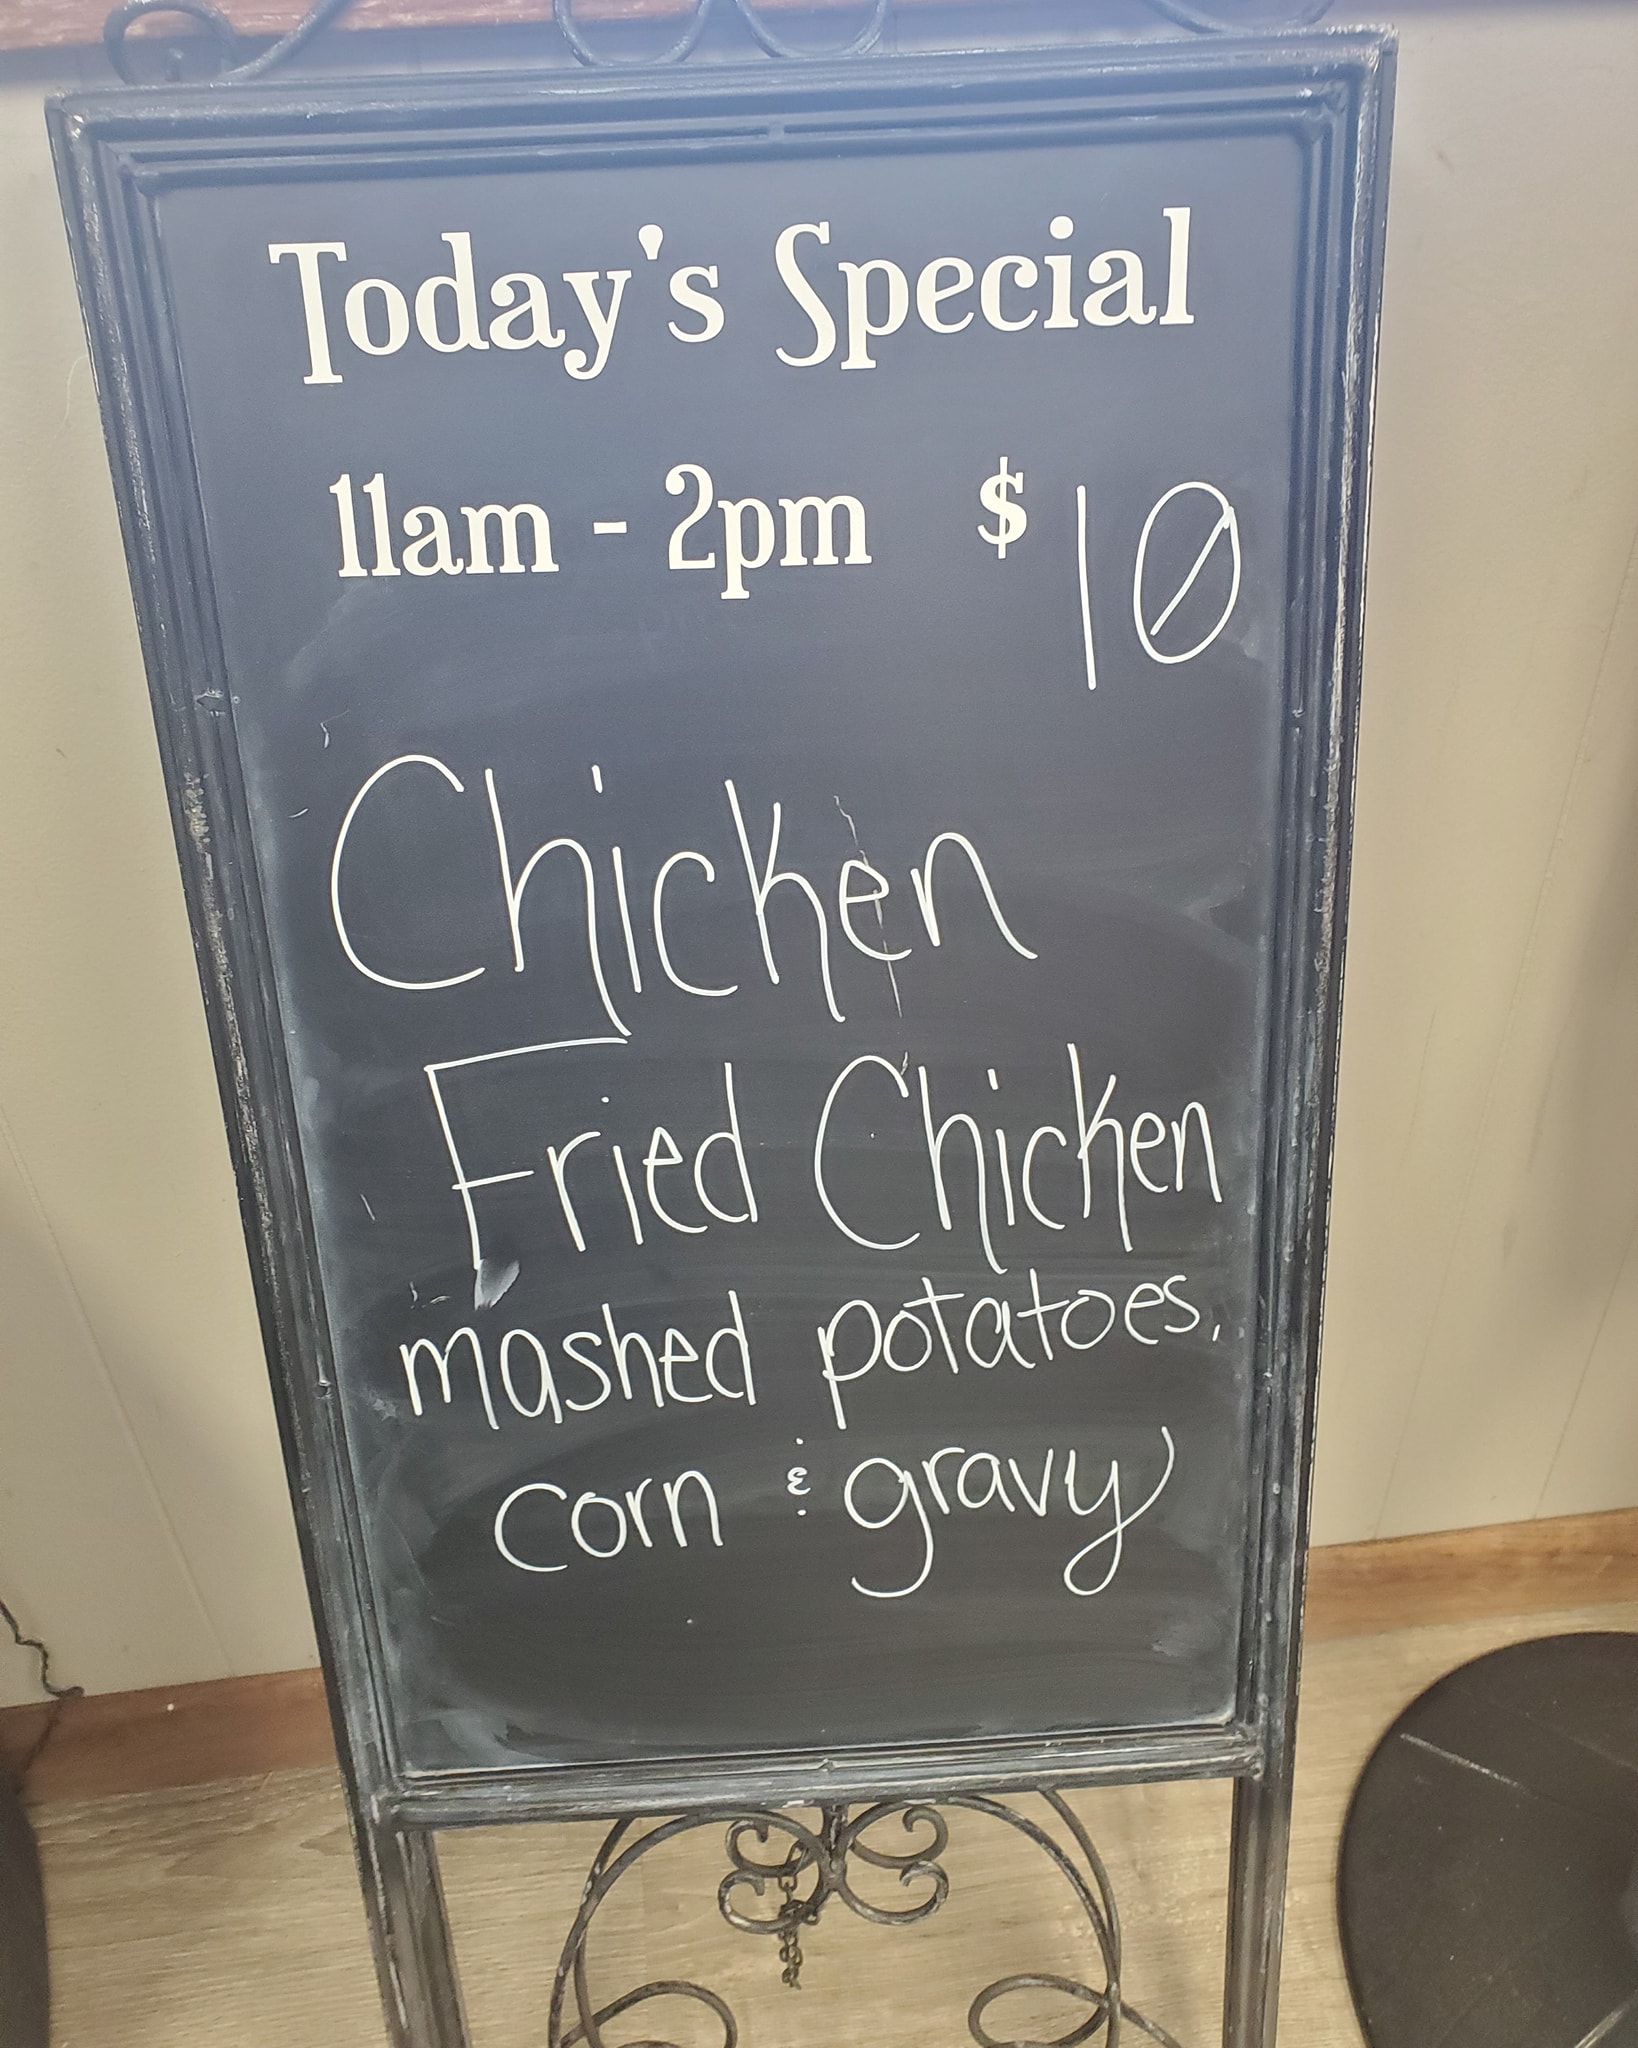 Today's Special
11am - 2pm $10
Chicken
Fried Chicken
mashed potatoes,
corn & gravy